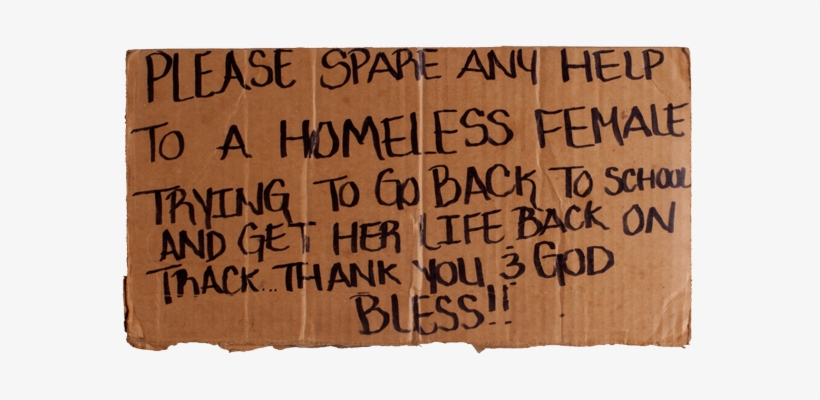 PLEASE SPARE ANY HELP
TO A HOMELESS FEMALE
TRYING TO GO BACK TO SCHOOL
AND GET HER LIFE BACK ON
TRACK...THANK YOU & GOD
BLESS!!